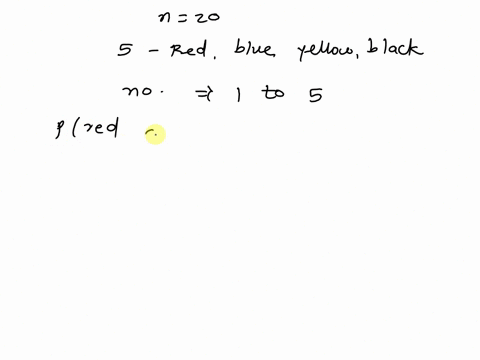 n = 20
5 - Red, blue, yellow, black
no. ⇒ 1 to 5
P(red